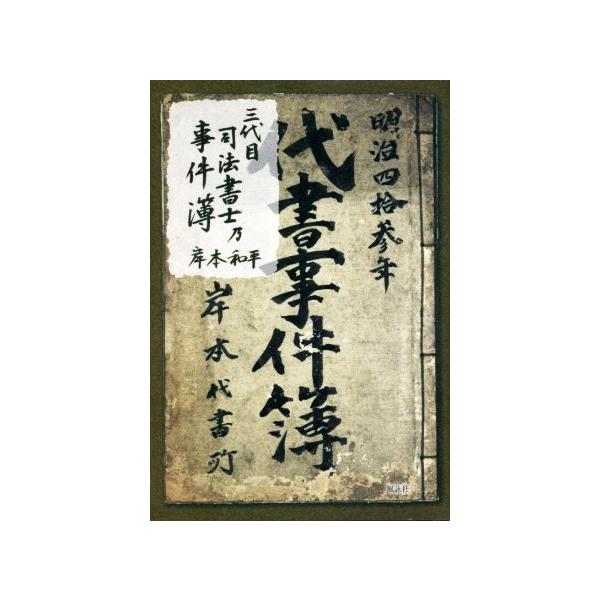 明治四拾参年
代書事件簿
三代目
司法書士乃
事件簿
岸本和平
岸本代書所
風詠社